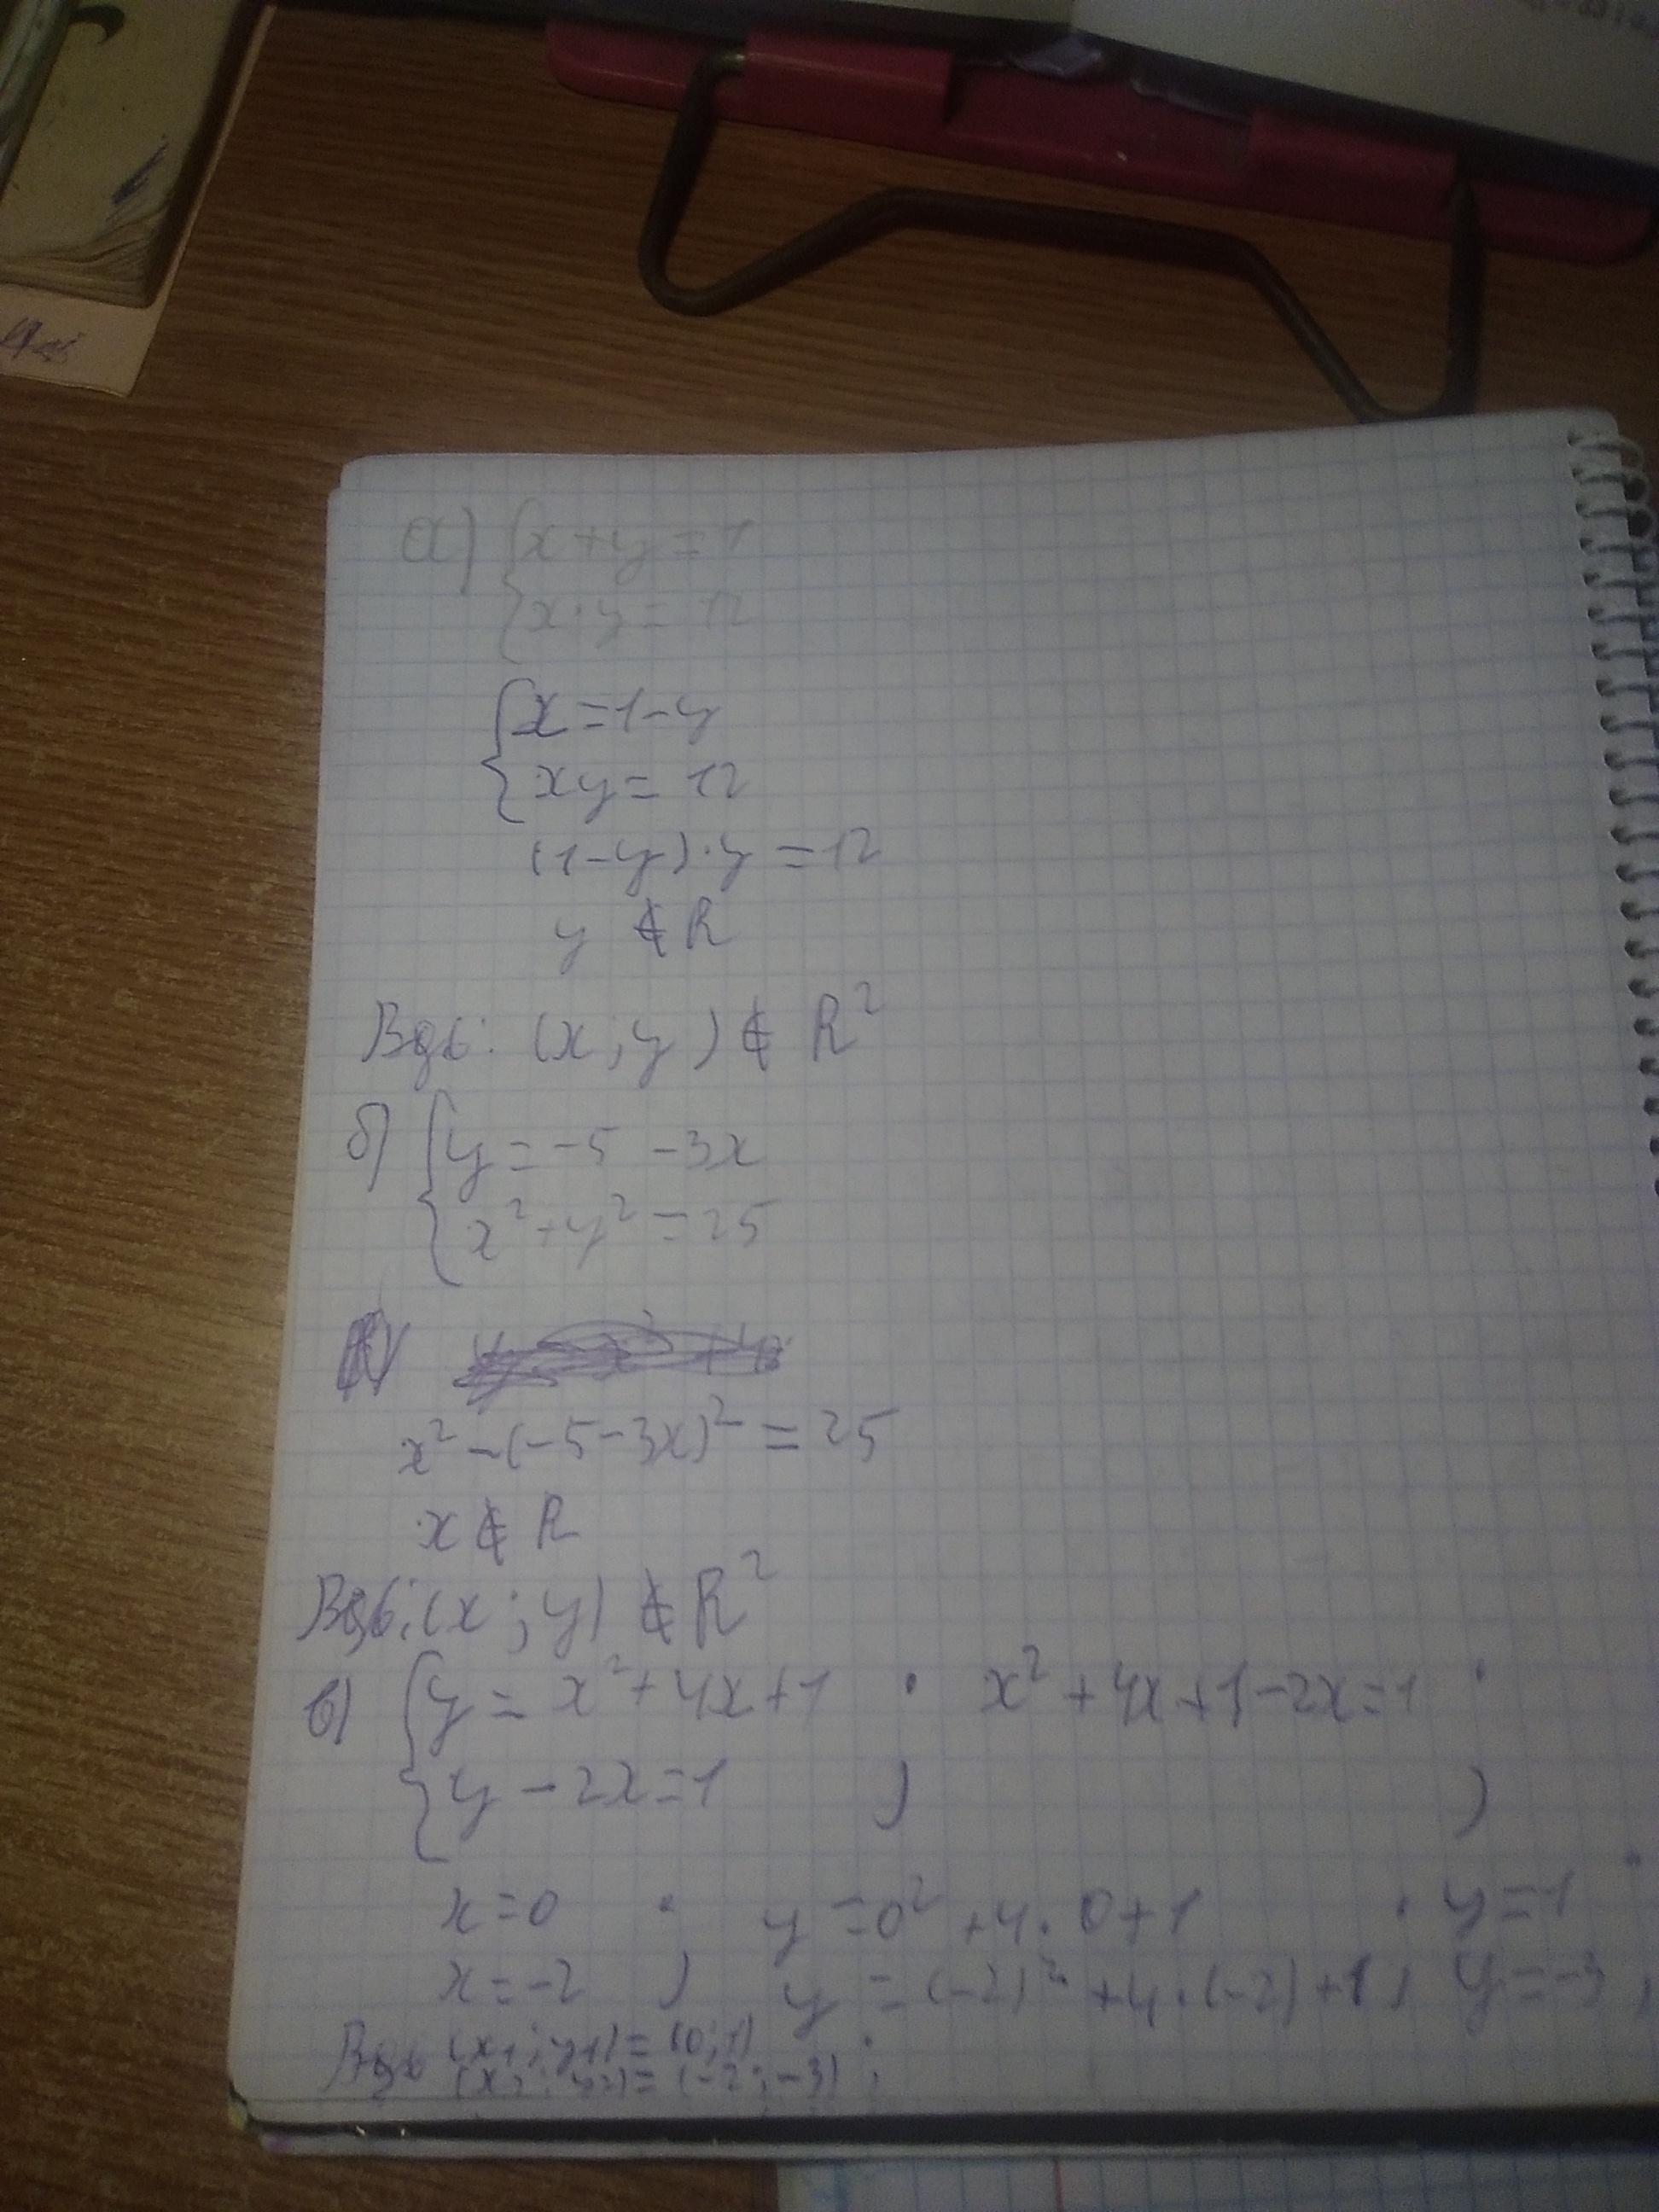 а) { x + y = 1
{ x · y = 12
{ x = 1 - y
{ xy = 12
(1 - y) · y = 12
y ∉ R
Вдб: (x ; y) ∉ R²
б) { y = -5 - 3x
{ x² + y² = 25
x² - (-5 - 3x)² = 25
x ∉ R
Вдб: (x ; y) ∉ R²
в) { y = x² + 4x + 1 ; x² + 4x + 1 - 2x = 1 ;
{ y - 2x = 1
x = 0 ; y = 0² + 4 · 0 + 1 ; y = 1 ;
x = -2 y = (-2)² + 4 · (-2) + 1 y = -3
Вдб (x1 ; y1) = (0 ; 1) ;
(x2 ; y2) = (-2 ; -3)